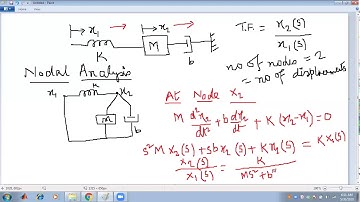 x₁
x₂
K
M
b
T.F. = x₂(s) / x₁(s)
no of nodes = 2
= no of displacements
Nodal Analysis
x₁
K
x₂
M
b
At Node x₂
M d²x₂/dt² + b dx₂/dt + K(x₂-x₁) = 0
s²M x₂(s) + sb x₂(s) + K x₂(s) = K x₁(s)
x₂(s) / x₁(s) = K / MS² + b